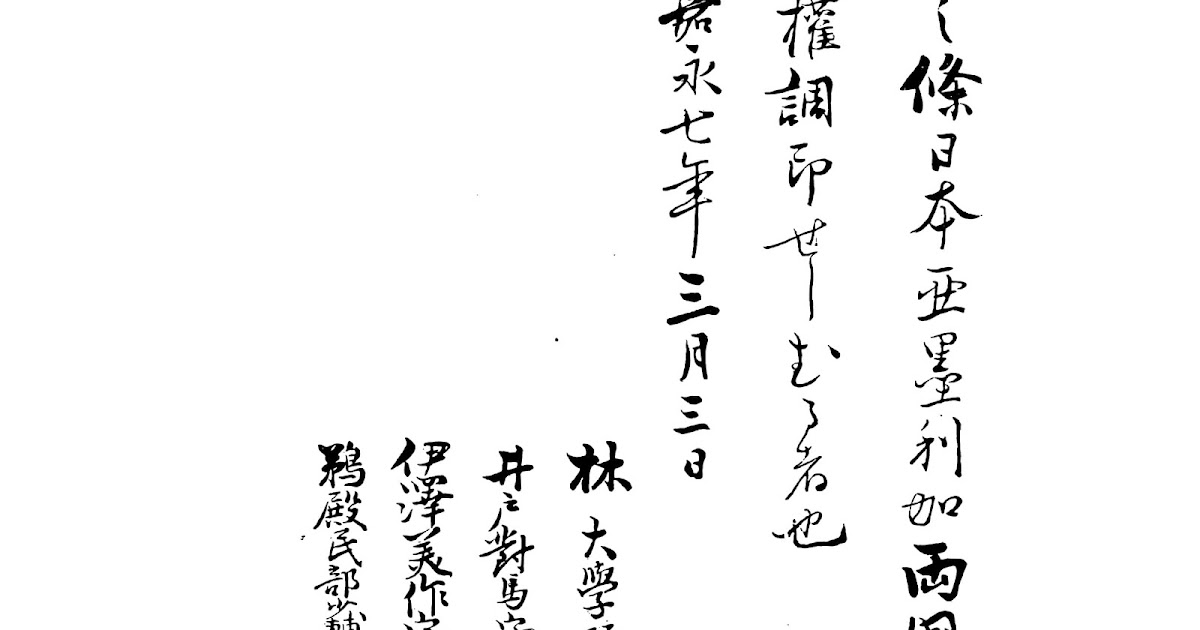 之條日本亜墨利加両國
權調印せしむる者也
嘉永七年三月三日
林大學頭
井戸對馬守
伊澤美作守
鵜殿民部少輔